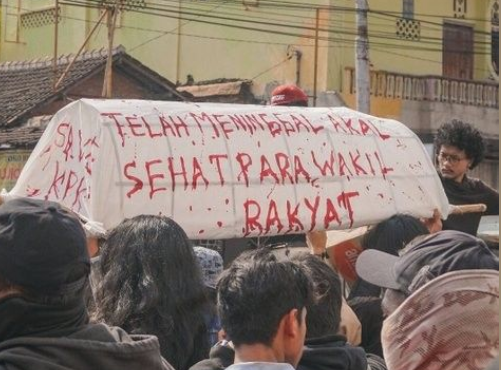 TELAH MENINGGAL AKAL
SEHAT PARA WAKIL
RAKYAT
KPK